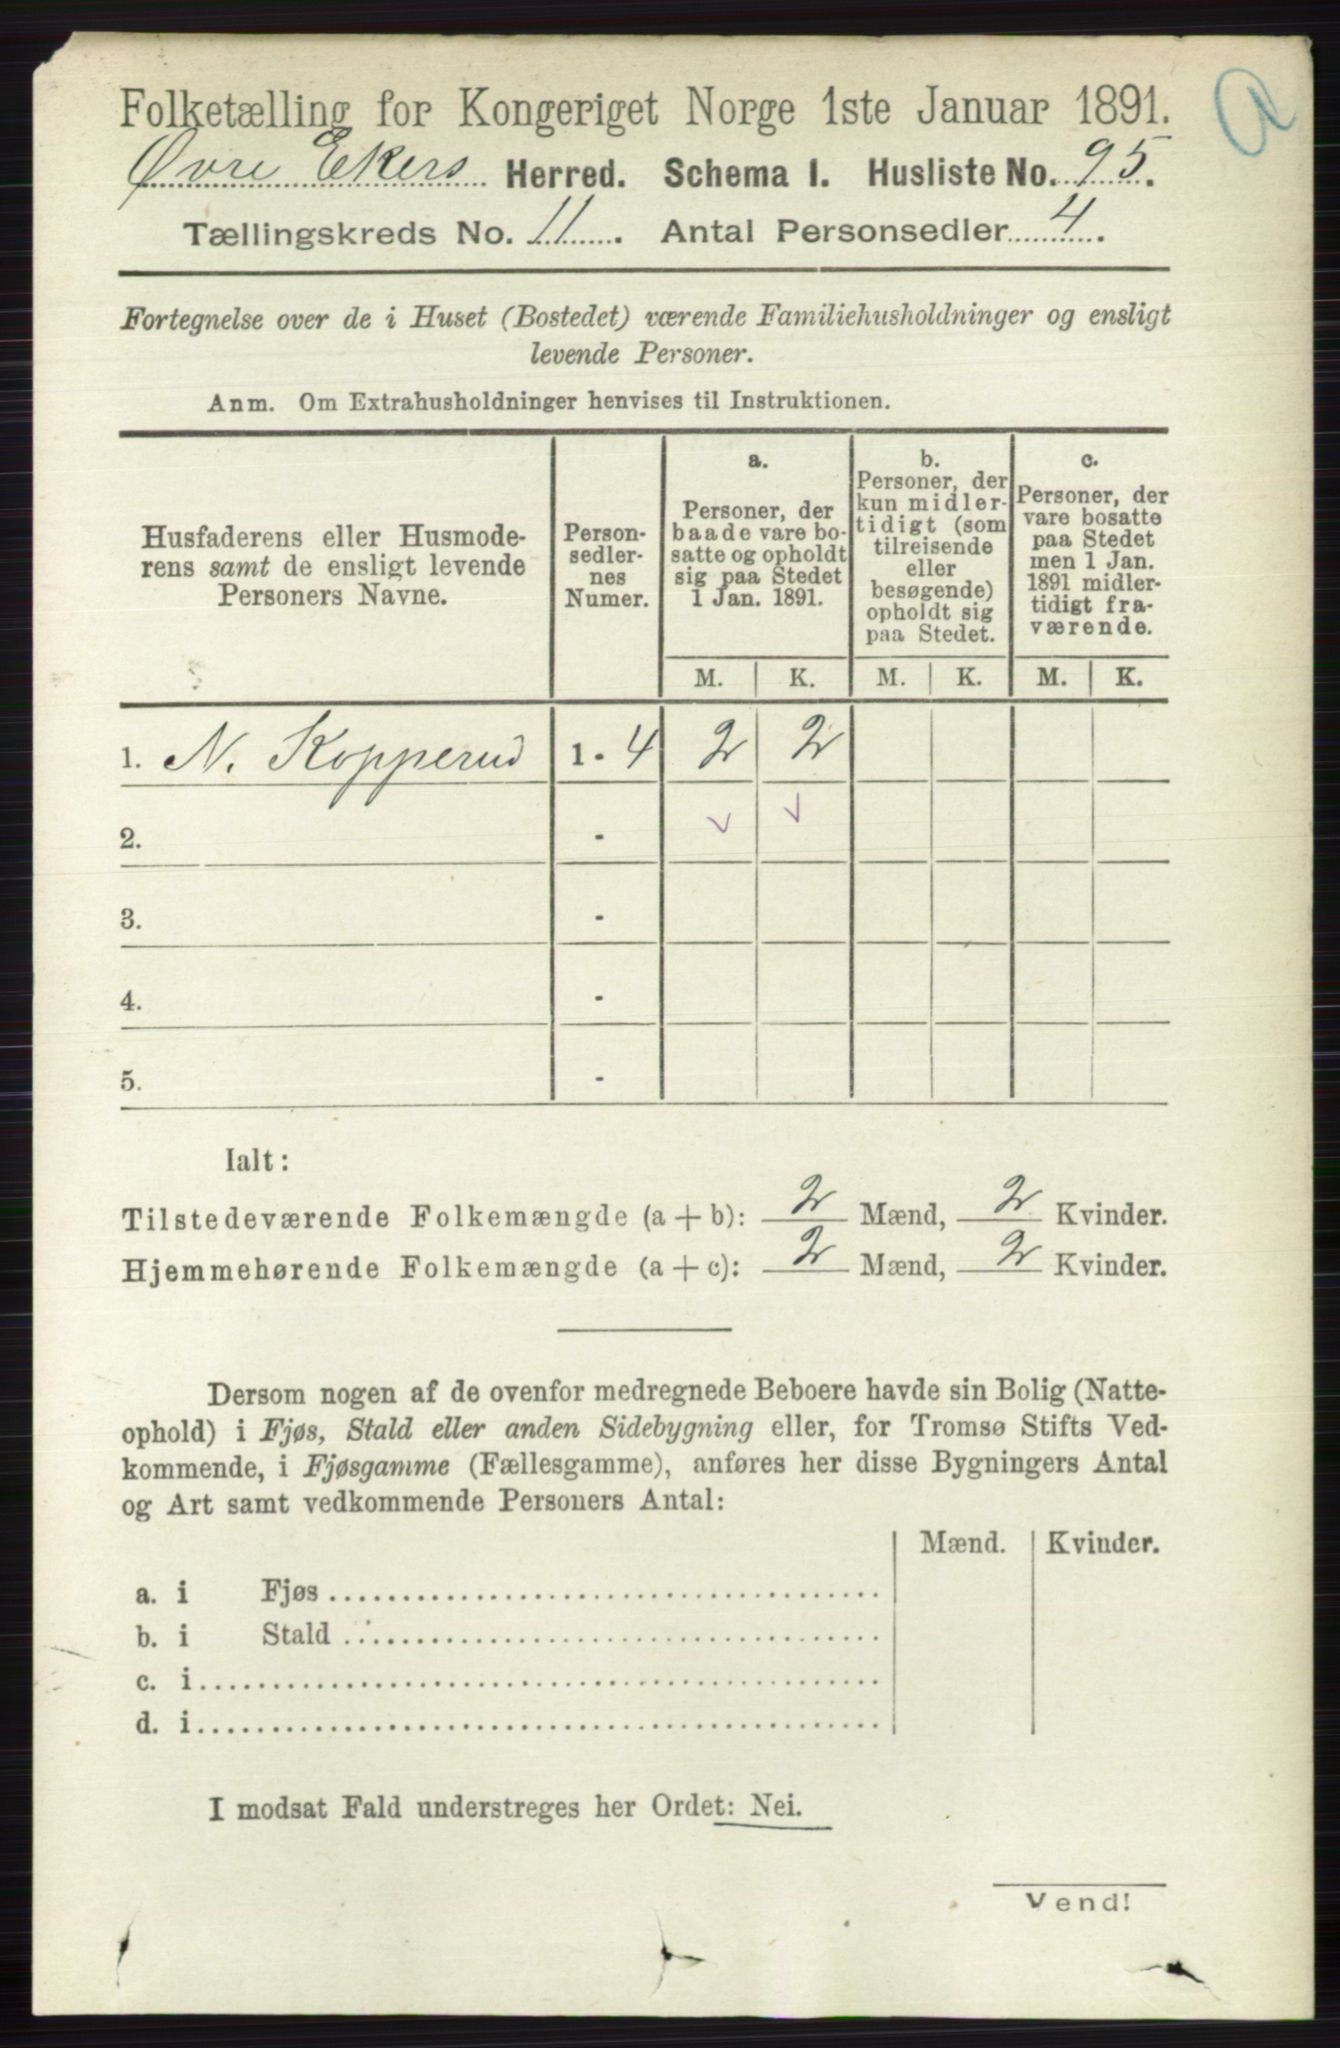 Folketælling for Kongeriget Norge 1ste Januar 1891.
Øvre Ekers Herred. Schema I. Husliste No. 95.
Tællingskreds No. 11. Antal Personsedler 4.
Fortegnelse over de i Huset (Bostedet) værende Familiehusholdninger og ensligt
levende Personer.
Anm. Om Extrahusholdninger henvises til Instruktionen.
Husfaderens eller Husmode-
rens samt de ensligt levende
Personers Navne.
Person-
sedler-
nes
Numer.
a.
Personer, der
baade vare bo-
satte og opholdt
sig paa Stedet
1 Jan. 1891.
b.
Personer, der
kun midler-
tidigt (som
tilreisende
eller
besøgende)
opholdt sig
paa Stedet.
c.
Personer, der
vare bosatte
paa Stedet
men 1 Jan.
1891 midler-
tidigt fra-
værende.
M. K. M. K. M. K.
1. N. Kopperud 1 - 4 2 2
2. -
3. -
4. -
5. -
Ialt:
Tilstedeværende Folkemængde (a + b): 2 Mænd, 2 Kvinder.
Hjemmehørende Folkemængde (a + c): 2 Mænd, 2 Kvinder.
Dersom nogen af de ovenfor medregnede Beboere havde sin Bolig (Natte-
ophold) i Fjøs, Stald eller anden Sidebygning eller, for Tromsø Stifts Ved-
kommende, i Fjøsgamme (Fællesgamme), anføres her disse Bygningers Antal
og Art samt vedkommende Personers Antal:
Mænd. Kvinder.
a. i Fjøs
b. i Stald
c. i
d. i
I modsat Fald understreges her Ordet: Nei.
Vend!